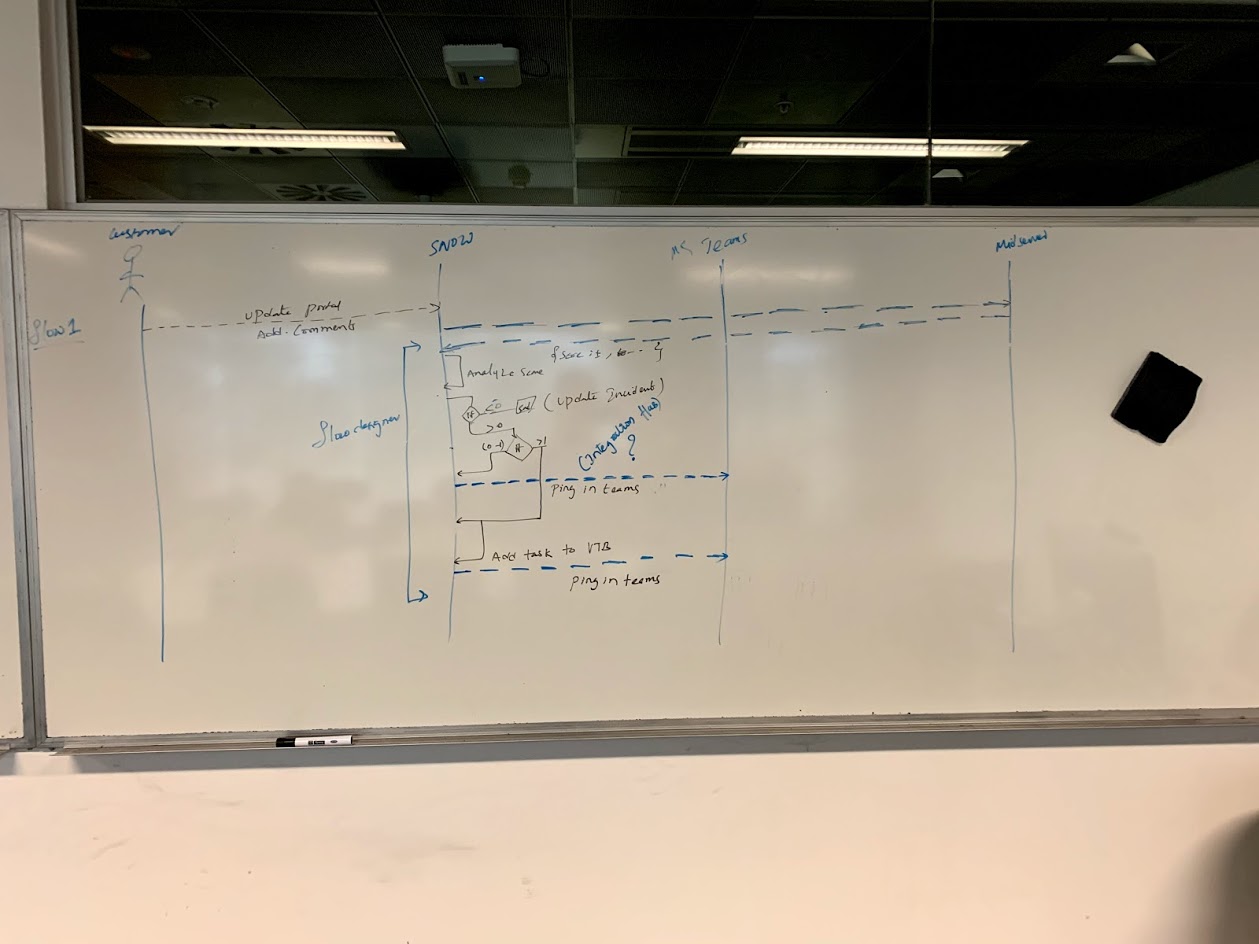 Customer
SNOW
MS Teams
Midserver
flow 1
Update Portal
Add. Comments
Analyze Score
flow designer
If
<0
(Update Incident)
>0
(0-1)
If
>1
(Integration Hub)
?
Ping in teams
Add task to VTB
Ping in teams